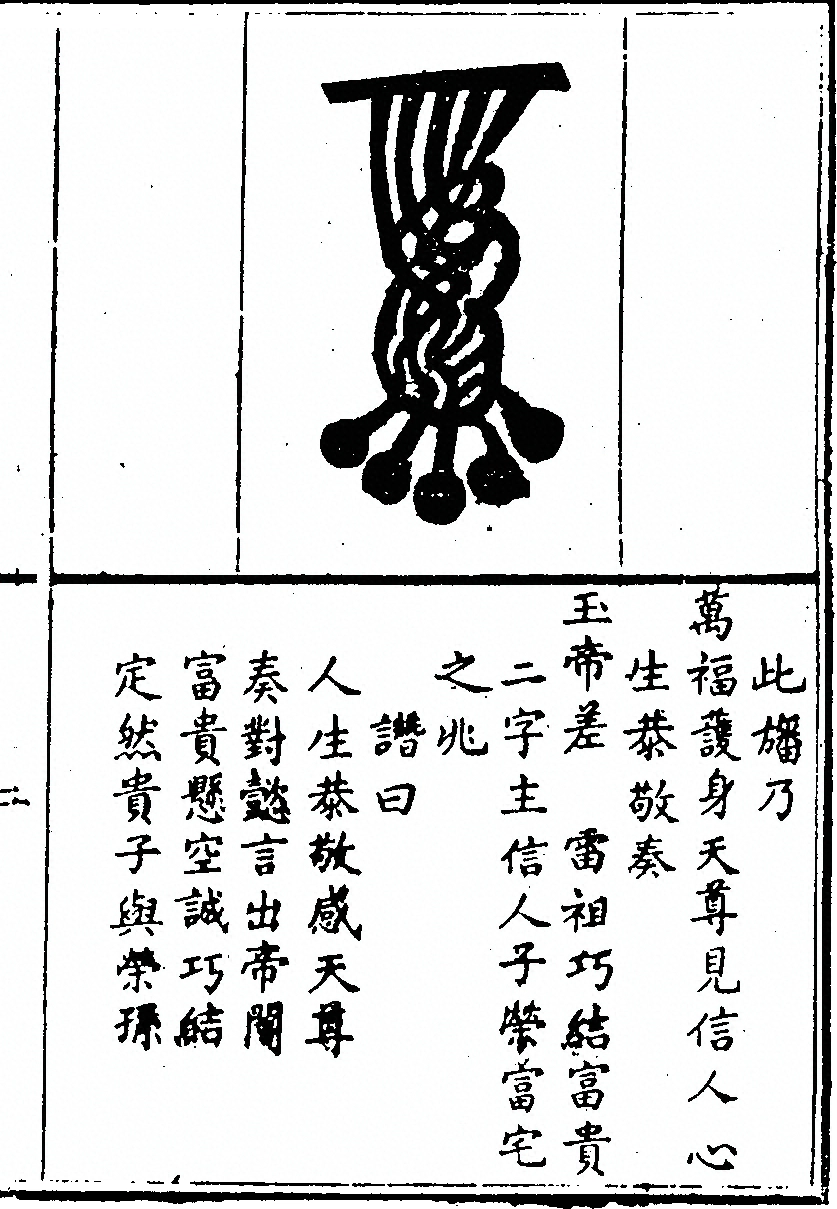 此旛乃
萬福護身天尊見信人心
生恭敬奏
玉帝差 雷祖巧結富貴
二字主信人子榮富宅
之兆
讚曰
人生恭敬感天尊
奏對懿言出帝閽
富貴懸空誠巧結
定然貴子與榮孫